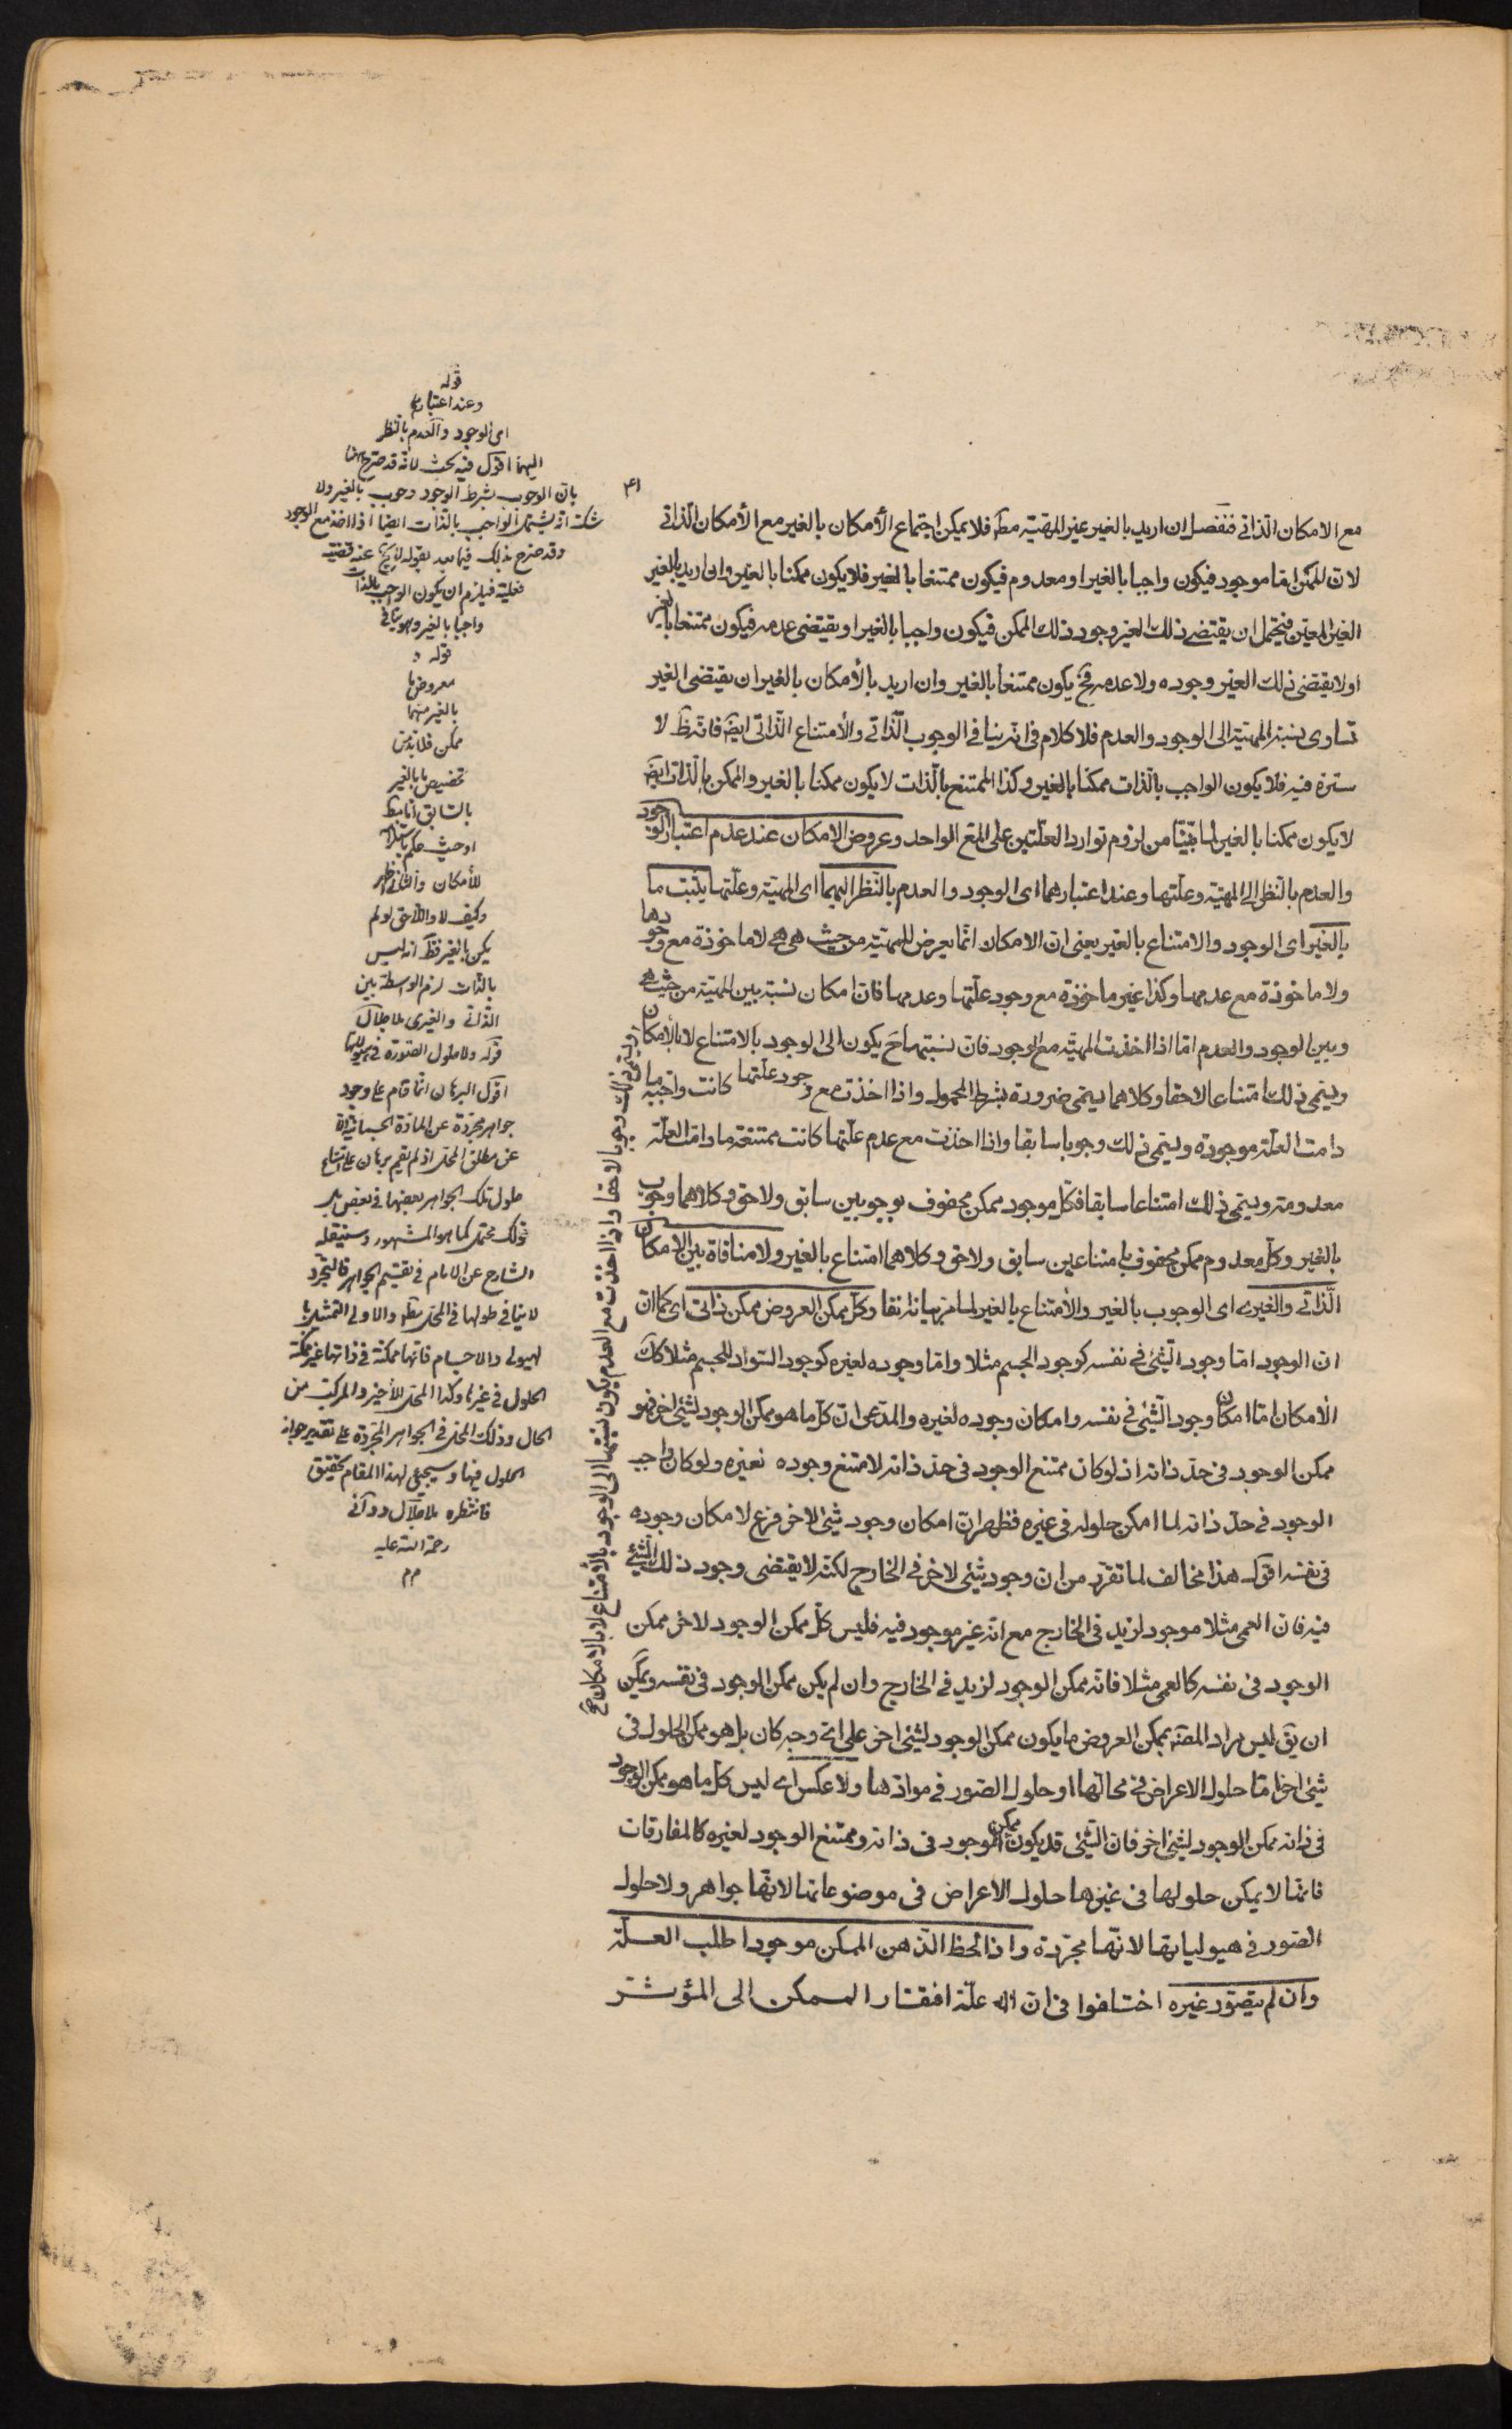 ۳۱
مع الامكان الذاتى فنفصل ان اريد بالغير غير المهيّة مط فلا يمكن اجتماع الأمكان بالغير مع الأمكان الذاتى
لان الممكن اما موجود فيكون واجبا بالغير او معدوم فيكون ممتنعا بالغير فلا يكون ممكنا بالغير وان اريد بالغير
الغير المعيّن فيحتمل ان يقتضى ذلك الغير وجود ذلك الممكن فيكون واجبا بالغير او يقتضى عدمه فيكون ممتنعا بالغير
او لا يقتضى ذلك الغير وجوده ولا عدمه فح يكون ممتنعا بالغير وان اريد بالأمكان بالغير ان يقتضى الغير
تساوى نسبة المهيّة الى الوجود والعدم فلا كلام فى انه ينافى الوجوب الذّاتى والأمتناع الذّاتى ايضا فانّه ظ لا
سترة فيه فلا يكون الواجب بالذات ممكنا بالغير وكذا الممتنع بالذّات لا يكون ممكنا بالغير والممكن بالذات ايضا
لا يكون ممكنا بالغير لما بيّنا من لزوم توارد العلّتين على المع الواحد وعروض الامكان عند عدم اعتبار الوجود
والعدم بالنّظر الى المهيّة وعلّتها وعند اعتبارهما اى الوجود والعدم بالنّظر اليهما اى المهيّة وعلّتها يثبت ما
بالغير اى الوجود والامتناع بالغير يعنى ان الامكان انّما يعرض للمهيّة من حيث هى هى لا ماخوذة مع وجودها
ولا ماخوذة مع عدمها وكذا غير ماخوذة مع وجود علّتها وعدمها فان امكان نسبة بين المهيّة من حيث هى
وبين الوجود والعدم امّا اذا اخذت المهيّة مع الوجود فان نسبتها ح يكون الى الوجود بالامتناع لا بالأمكان
ويسمى ذلك امتناعا لاحقا وكلاهما يسمى ضرورة بشرط المحمول واذا اخذت مع وجود علّتها كانت واجبة ما
دامت العلّة موجودة ويسمّى ذلك وجوبا سابقا واذا اخذت مع عدم علّتها كانت ممتنعة ما دامت العلّة
معدومة ويسمى ذلك امتناعا سابقا فكلّ موجود ممكن محفوف بوجوبين سابق ولاحق وكلاهما وجوب
بالغير وكلّ معدوم ممكن محفوف بامتناعين سابق ولاحق وكلاهما امتناع بالغير ولا منافاة بين الامكان
الذّاتى والغيرى اى الوجوب بالغير والأمتناع بالغير لما مرّ بيانه انفا وكلّ ممكن العروض ممكن ذاتى اى كما ان
ان الوجود امّا وجود الشّئ فى نفسه كوجود الجسم مثلا وامّا وجوده لغيره كوجود السّواد للجسم مثلا كذلك
الأمكان امّا امكان وجود الشّئ فى نفسه وامكان وجوده لغيره والمدّعى ان كلّ ما هو ممكن الوجود لشئ اخر فهو
ممكن الوجود فى حدّ ذاته اذ لو كان ممتنع الوجود فى حدّ ذاته لامتنع وجوده لغيره ولو كان واجب
الوجود فى حدّ ذاته لما امكن حلوله فى غيره فظهر انّ امكان وجود شئ لاخر فرع لامكان وجوده
فى نفسه اقول هذا مخالف لما تقرّر من ان وجود شئ لاخر فى الخارج لكنّه لا يقتضى وجود ذلك الشّئ
فيه فان العمى مثلا موجود لزيد فى الخارج مع انه غير موجود فيه فليس كلّ ممكن الوجود لاخر ممكن
الوجود فى نفسه كالعمى مثلا فانّه ممكن الوجود لزيد فى الخارج وان لم يكن ممكن الوجود فى نفسه ويمكن
ان يق ليس مراد المصنّف بممكن العروض ما يكون ممكن الوجود لشئ اخر على اىّ وجه كان بل هو ممكن الحلول فى
شئ اخر امّا حلول الاعراض فى محالّها او حلول الصّور فى موادّها ولا عكس اى ليس كلّ ما هو ممكن الوجود
فى ذاته ممكن الوجود لشئ اخر فان الشّئ قد يكون ممكن الوجود فى ذاته وممتنع الوجود لغيره كالمفارقات
فانّها لا يمكن حلولها فى غيرها حلول الاعراض فى موضوعاتها لانّها جواهر ولا حلول
الصّور فى هيولياتها لانّها مجرّدة واذا لحظ الذّهن الممكن موجودا طلب العلّة
وان لم يتصوّر غيره اختلفوا فى ان علّة افتقار الممكن الى المؤثر
ويسمى ذلك وجوبا لاحقا واذا اخذت مع العدم يكون نسبتها الى الوجود بالامتناع لا بالامكان صح
قوله
وعند اعتبارهما
اى الوجود والعدم بالنظر
اليهما اقول فيه بحث لانه قد صرح ههنا
بان الوجوب بشرط الوجود وجوب بالغير ولا
شك انه يشتمل الواجب بالذات ايضا اذا اخذ مع الوجود
وقد صرح بذلك فيما بعد بقوله لا يخ عنه قضية
فعلية فيلزم ان يكون الواجب بالذات
واجبا بالغير وهو ينافى
قوله و
معروض ما
بالغير منهما
ممكن فلا بد من
تخصيص ما بالغير
بالسابق
للأمكان والثانى ظهر
وكيف لا واللاحق لو لم
يكن بالغير فظ انه ليس
بالذات لزم الواسطة بين
الذاتى والغيرى ملا جلال
قوله ولا حلول الصورة فى هيولياتها
اقول البرهان انما قام على وجود
جواهر مجردة عن المادة الجسمانية لا
عن مطلق المحل اذ لم يقم برهان على امتناع
حلول تلك الجواهر بعضها فى بعض بل
ذلك محتمل كما هو المشهور وسينقله
الشارح عن الامام فى تقسيم الجواهر فالتجرد
لا ينافى حلولها فى المحل مط والاولى التمثيل با
لهيولى والاجسام فانها ممكنة فى ذاتها غير ممكنة
الحلول فى غيرها وكذا المحل للأخير والمركب من
الحال وذلك المحل فى الجواهر المجردة على تقدير جواز
الحلول فيها وسيجئ لهذا المقام تحقيق
فانتظره ملا جلال دوانى
رحمة الله عليه
م م